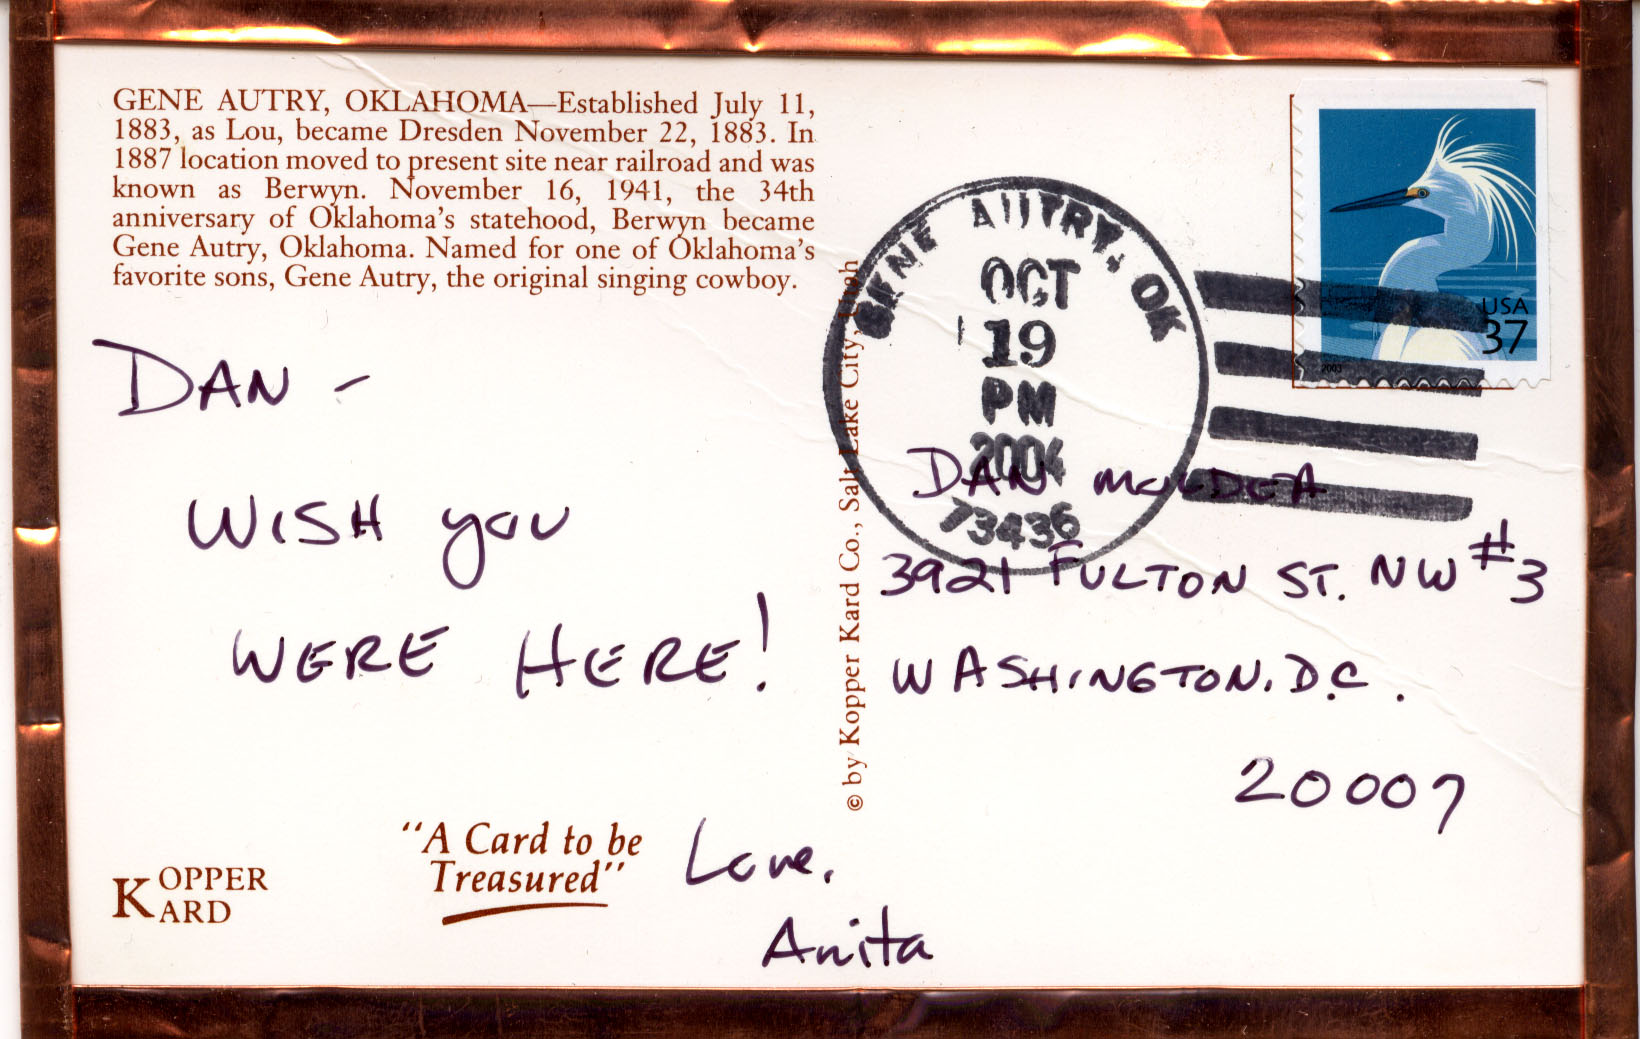 GENE AUTRY, OKLAHOMA—Established July 11,
1883, as Lou, became Dresden November 22, 1883. In
1887 location moved to present site near railroad and was
known as Berwyn. November 16, 1941, the 34th
anniversary of Oklahoma's statehood, Berwyn became
Gene Autry, Oklahoma. Named for one of Oklahoma's
favorite sons, Gene Autry, the original singing cowboy.
DAN -
WISH you
WERE HERE!
Love,
Anita
KOPPER
KARD
"A Card to be
Treasured"
© by Kopper Kard Co., Salt Lake City, Utah
GENE AUTRY, OK
OCT
19
PM
2004
73436
USA
37
2003
DAN MOLDEA
3921 FULTON ST. NW #3
WASHINGTON, D.C.
20007